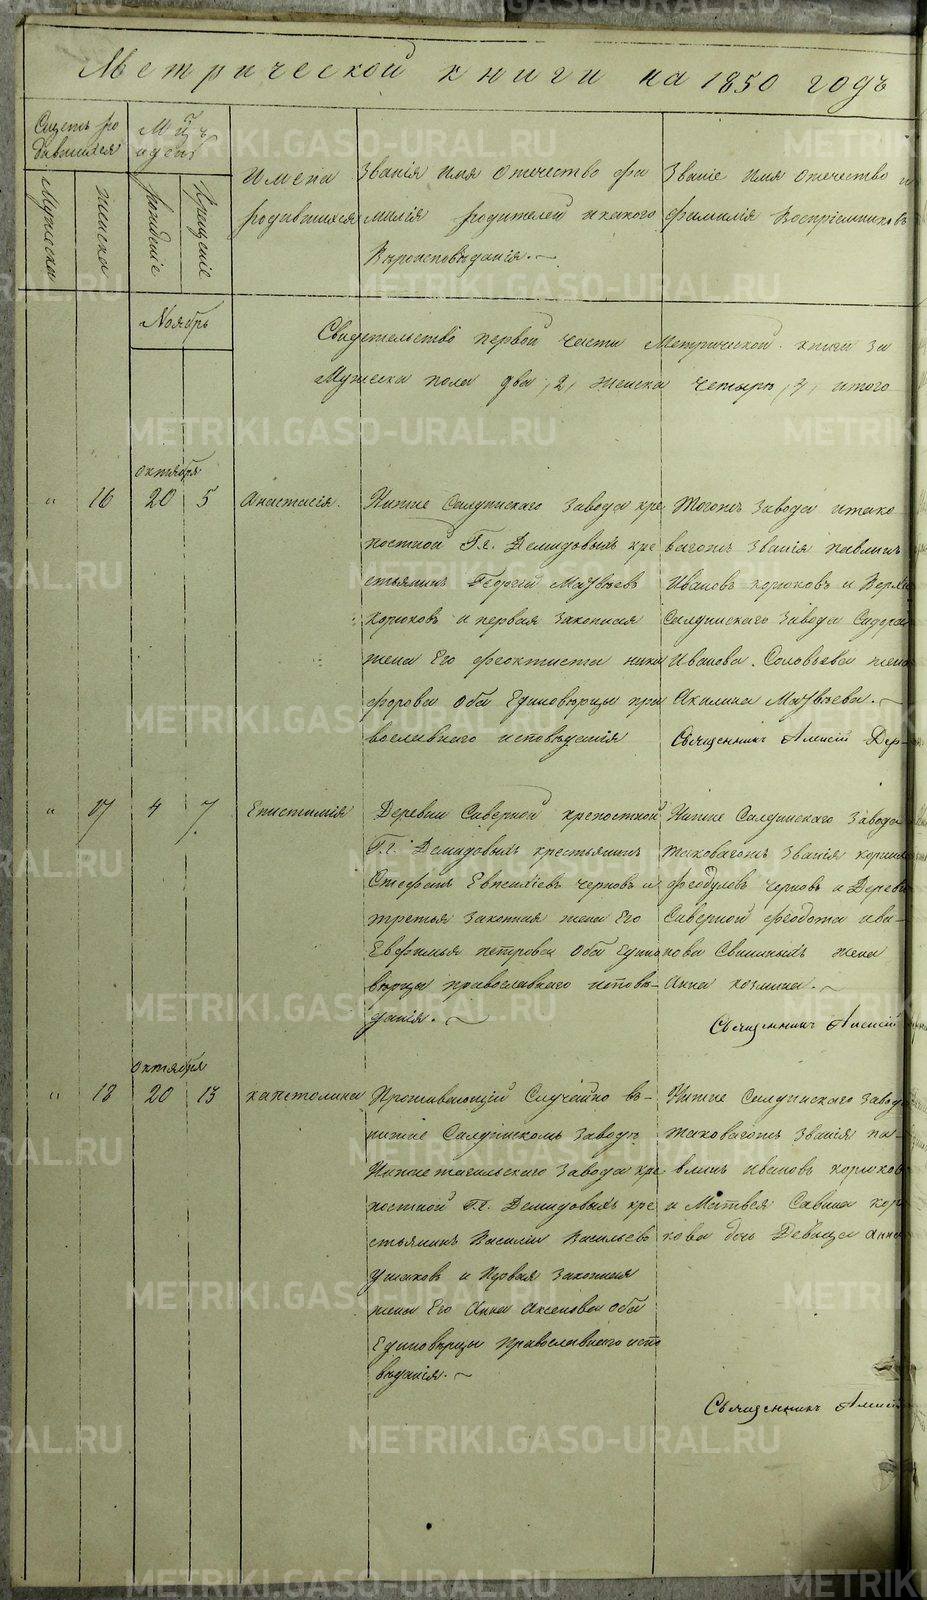 Метрической книги на 1850 годъ
Счетъ ро
дившихся
Мужеска
женска
М-цъ
и день
рожденіе
Крещеніе
Имена
родившихся
Званія Имя Отечество фа
милія родителей и какого
Вѣроисповѣданія.
Званіе Имя Отечество и
фамилія Воспріемниковъ
Ноябрь
Свидетельство первой части Метрической книги за
Мужеска пола два, 2, женска четыре, 4, итого
Октября
" 16 20 5 Анастасія.
Нижне Салдинскаго Завода кре
постной Г.г. Демидовыхъ кре
стьянинъ Георгій Матвѣевъ
Хорюковъ и первая Законная
жена Его Феоктиста ники
форова Оба Единоверцы пра
вославнаго исповѣданія
Тогожъ Завода и тако
вагожъ Званія павлинъ
Ивановъ хорюковъ и Верхне
Салдинскаго Завода Сидора
Иванова Соловьева жена
Акилина Матвѣева.
Священникъ Алексій
" 17 4 7 Епистимія
Деревни Северной крепостной
Г.г. Демидовыхъ крестьянинъ
Стефанъ Евтихіевъ черновъ и
третья Законная жена Его
Евфимья петрова Оба Едино
вѣрцы православнаго исповѣ-
данія.
Нижне Салдинскаго Завода
таковагожъ Званія
феодуловъ черновъ и Деревни
Северной феодота ива-
нова Свининыхъ жена
Анна козмина.
Священникъ Алексій
Октября
" 18 20 13 капетолина
Проживающій Случайно въ
нижне Салдинскомъ Заводѣ
Нижнетагильскаго Завода кре
постной Г.г. Демидовыхъ кре
стьянинъ Василій Васильевъ
Ушаковъ и Первая Законная
жена Его Анна Аксенова Оба
Единоверцы Православнаго испо
вѣданія.
Нижне Салдинскаго Завода
таковагожъ Званія па-
влинъ Ивановъ хорюковъ
и Матвея Савина хорю
кова дочь Девица Анна
Священникъ Алексій
METRIKI.GASO-URAL.RU